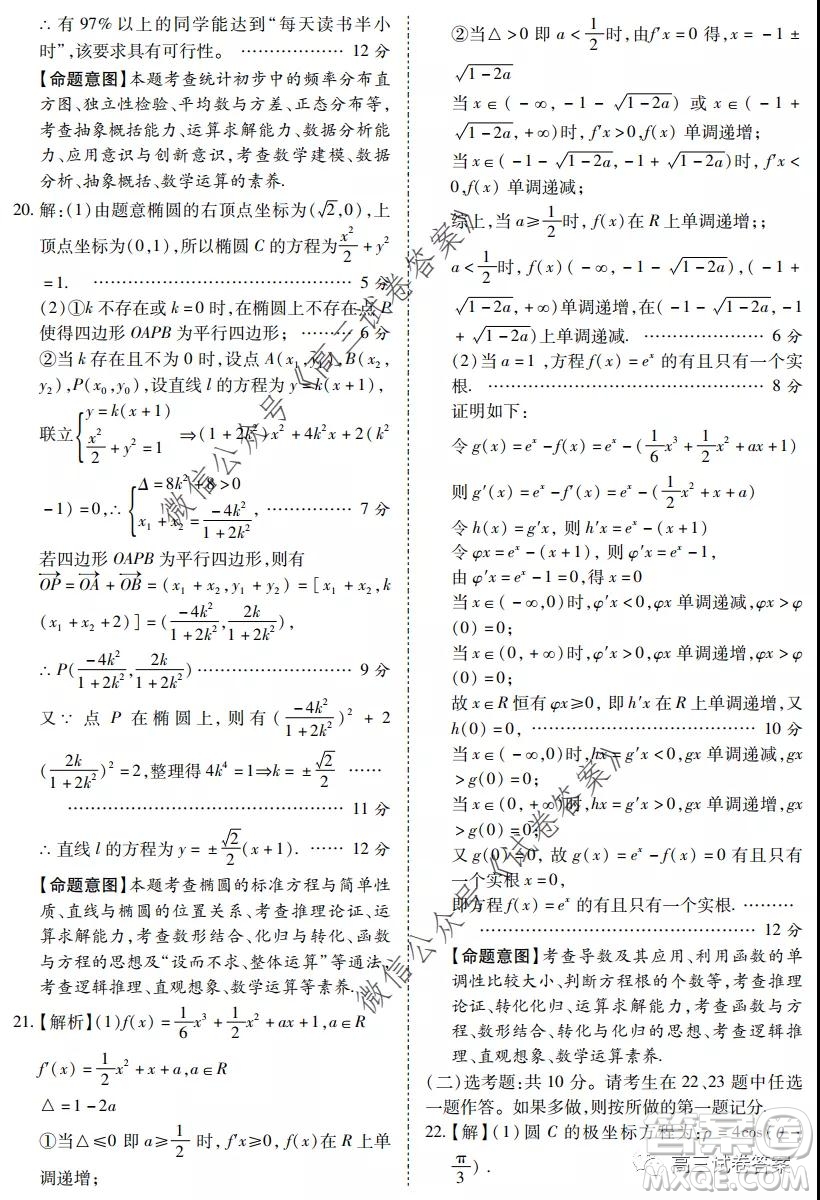 ∴ 有 97% 以上的同学能达到“每天读书半小
时”,该要求具有可行性。 ………………… 12 分
【命题意图】本题考查统计初步中的频率分布直
方图、独立性检验、平均数与方差、正态分布等,
考查抽象概括能力、运算求解能力、数据分析能
力、应用意识与创新意识,考查数学建模、数据
分析、抽象概括、数学运算的素养.
20. 解:(1)由题意椭圆的右顶点坐标为(√2,0),上
顶点坐标为(0,1),所以椭圆 C 的方程为x²/2 + y²
= 1. ………………………………………… 5 分
(2)①k 不存在或 k = 0 时,在椭圆上不存在点 P
使得四边形 OAPB 为平行四边形; ……… 6 分
②当 k 存在且不为 0 时,设点 A(x₁,y₁),B(x₂,
y₂),P(x₀,y₀),设直线 l 的方程为 y = k(x+1),
联立{y = k(x+1) x²/2 + y² = 1 ⇒(1+2k²)x² + 4k²x + 2(k²
-1) = 0,∴{Δ = 8k² + 8 > 0 x₁ + x₂ = -4k²/(1+2k²), …………… 7 分
若四边形 OAPB 为平行四边形,则有
OP→ = OA→ + OB→ = (x₁ + x₂,y₁ + y₂) = [x₁ + x₂,k
(x₁ + x₂ + 2)] = (-4k²/(1+2k²), 2k/(1+2k²)),
∴ P(-4k²/(1+2k²), 2k/(1+2k²)) ……………………… 9 分
又∵ 点 P 在椭圆上,则有(-4k²/(1+2k²))² + 2
(2k/(1+2k²))² = 2,整理得 4k⁴ = 1⇒k = ±√2/2 ……
………………………………………… 11 分
∴ 直线 l 的方程为 y = ±√2/2(x+1). …… 12 分
【命题意图】本题考查椭圆的标准方程与简单性
质、直线与椭圆的位置关系、考查推理论证、运
算求解能力,考查数形结合、化归与转化、函数
与方程的思想及“设而不求、整体运算”等通法,
考查逻辑推理、直观想象、数学运算等素养.
21.【解析】(1)f(x) = 1/6x³ + 1/2x² + ax + 1,a∈R
f′(x) = 1/2x² + x + a,a∈R
△ = 1 - 2a
①当△≤0 即 a≥1/2 时,f′x≥0,f(x)在 R 上单
调递增;
②当△ > 0 即 a < 1/2时,由f′x = 0 得,x = -1 ±
√1-2a
当 x∈( -∞, -1 - √1-2a) 或 x∈( -1 +
√1-2a, +∞)时,f′x > 0,f(x) 单调递增;
当 x∈( -1 - √1-2a, -1 + √1-2a)时,f′x <
0,f(x) 单调递减;
综上,当 a≥1/2时,f(x)在 R 上单调递增;;
a < 1/2时,f(x)( -∞, -1 - √1-2a),( -1 +
√1-2a, +∞)单调递增,在( -1 - √1-2a, -1
+ √1-2a)上单调递减. ……………… 6 分
(2)当 a = 1,方程 f(x) = eˣ 的有且只有一个实
根. ………………………………… 8 分
证明如下:
令 g(x) = eˣ - f(x) = eˣ - (1/6x³ + 1/2x² + ax + 1)
则 g′(x) = eˣ - f′(x) = eˣ - (1/2x² + x + a)
令 h(x) = g′x, 则 h′x = eˣ - (x+1)
令 φx = eˣ - (x+1), 则 φ′x = eˣ - 1,
由 φ′x = eˣ - 1 = 0,得 x = 0
当 x∈( -∞,0)时,φ′x < 0,φx 单调递减,φx > φ
(0) = 0;
当 x∈(0, +∞)时,φ′x > 0,φx 单调递增,φx > φ
(0) = 0;
故 x∈R 恒有 φx≥0, 即 h′x 在 R 上单调递增,又
h(0) = 0, ………………………… 10 分
当 x∈( -∞,0)时,hx = g′x < 0,gx 单调递减,gx
> g(0) = 0;
当 x∈(0, +∞)时,hx = g′x > 0,gx 单调递增,gx
> g(0) = 0;
又 g(0) = 0, 故 g(x) = eˣ - f(x) = 0 有且只有
一个实根 x = 0,
即方程 f(x) = eˣ 的有且只有一个实根. ………
………………………………… 12 分
【命题意图】考查导数及其应用、利用函数的单
调性比较大小、判断方程根的个数等,考查推理
论证、转化化归、运算求解能力,考查函数与方
程、数形结合、转化与化归的思想、考查逻辑推
理、直观想象、数学运算素养.
(二)选考题:共 10 分。请考生在 22、23 题中任选
一题作答。如果多做,则按所做的第一题记分.
22.【解】(1)圆 C 的极坐标方程为:ρ = 4cos(θ -
π/3).
微信公众号《高三试卷答案》
微信公众号《试卷答案》
高三试卷答案